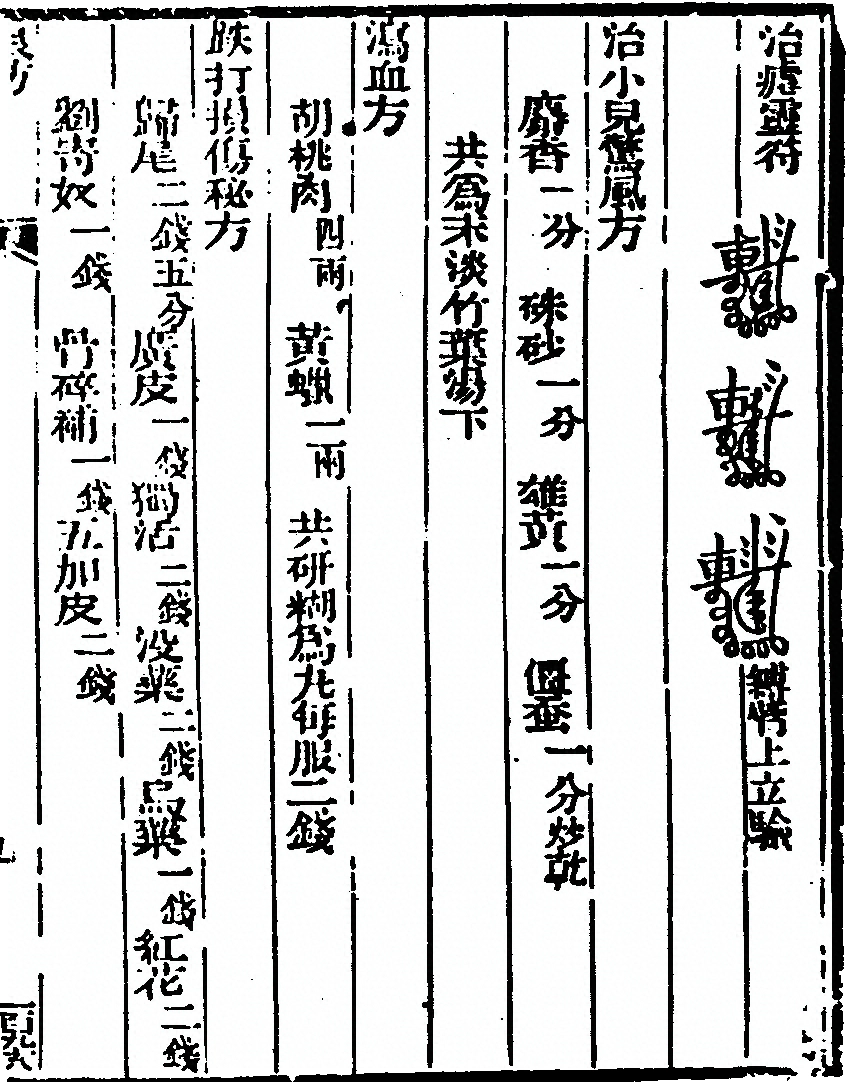 治瘧靈符
縛臂上立驗
治小兒驚風方
麝香一分 硃砂一分 雄黃一分 僵蚕一分炒乾
共爲末淡竹葉湯下
瀉血方
胡桃肉四兩 黃蠟二兩 共研糊爲丸每服二錢
跌打損傷秘方
歸尾二錢五分 廣皮一錢 獨活二錢 没藥二錢 烏藥一錢 紅花二錢
劉寄奴一錢 骨碎補一錢 五加皮二錢
良方
九
四百九六